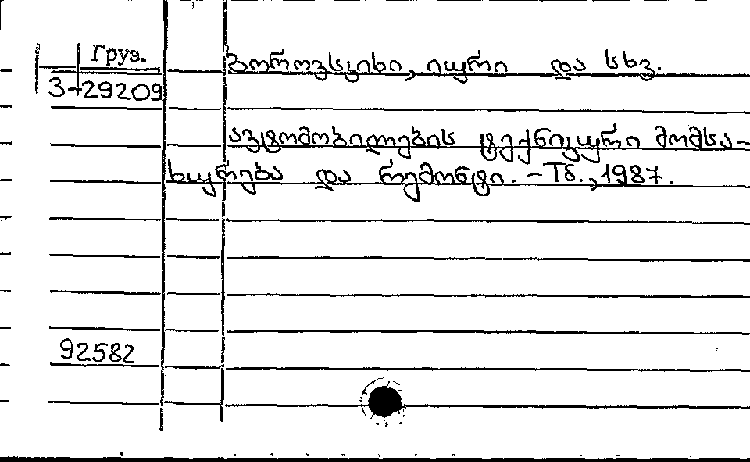 Груз.
3-29209
ბოროვსკიხი, იური და სხვ.
ავტომობილების ტექნიკური მომსა-
ხურება და რემონტი. – Тб., 1987.
92582